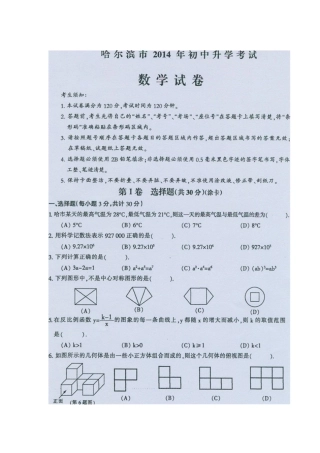 哈尔滨市 2014 年初中升学考试
数学试卷
考生须知：
1. 本试卷满分为 120 分,考试时间为 120 分钟。
2. 答题前,考生先将自己的“姓名”、“考号”、“考场”、“座位号”在答题卡上填写清楚,将“条
形码”准确粘贴在条形码区域内。
3. 请按照题号顺序在答题卡各题目的答题区域内作答,超出答题区域书写的答案无效；
在草稿纸、试题纸上答题无效。
4. 选择题必须使用 2B 铅笔填涂；非选择题必须使用 0.5 毫米黑色字迹的签字笔书写,字体
工整、笔迹清楚。
5. 保持卡面整洁,不要折叠、不要弄脏、不要弄皱,不准使用涂改液、修正带、刮纸刀。
第Ⅰ卷 选择题(共 30 分)(涂卡)
一、选择题(每小题 3 分,共计 30 分)
1. 哈市某天的最高气温为 28℃,最低气温为 21℃,则这一天的最高气温与最低气温的差为( ).
(A) 5℃ (B) 6℃ (C) 7℃ (D) 8℃
2. 用科学记数法表示 927 000 正确的是( ).
(A) 9.27×10⁶ (B) 9.27×10⁵ (C) 9.27×10⁴ (D) 927×10³
3. 下列计算正确的是( ).
(A) 3a-2a=1
4. 下列图形中,不是中心对称图形的是( ).
(A) (B) (C) (D)
5. 在反比例函数 y=k-1/x 的图象的每一条曲线上,y 都随 x 的增大而减小,则 k 的取值范
围是( ).
(A) k>1 (B) k>0 (C) k≥1 (D) k<1
6. 如图所示的几何体是由一些小正方体组合而成的,则这个几何体的俯视图是( ).
正面 (第 6 题图) (A) (B) (C) (D)